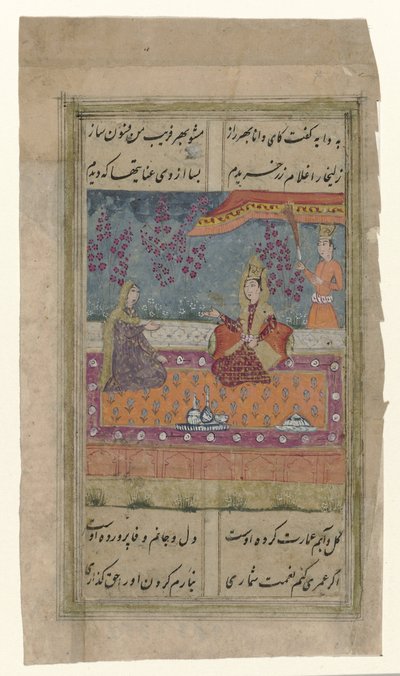 به دایه گفت کای دانا بهر راز مشو بهر فریب من فسون ساز
زلیخا را غلام زر خریدم بسا از وی عنایتها که دیدم
گل و آبم عمارت کرده اوست دل و جانم وفا پرورده اوست
اگر عمری کنم نعمت شماری نیارم کردن او را حق گذاری